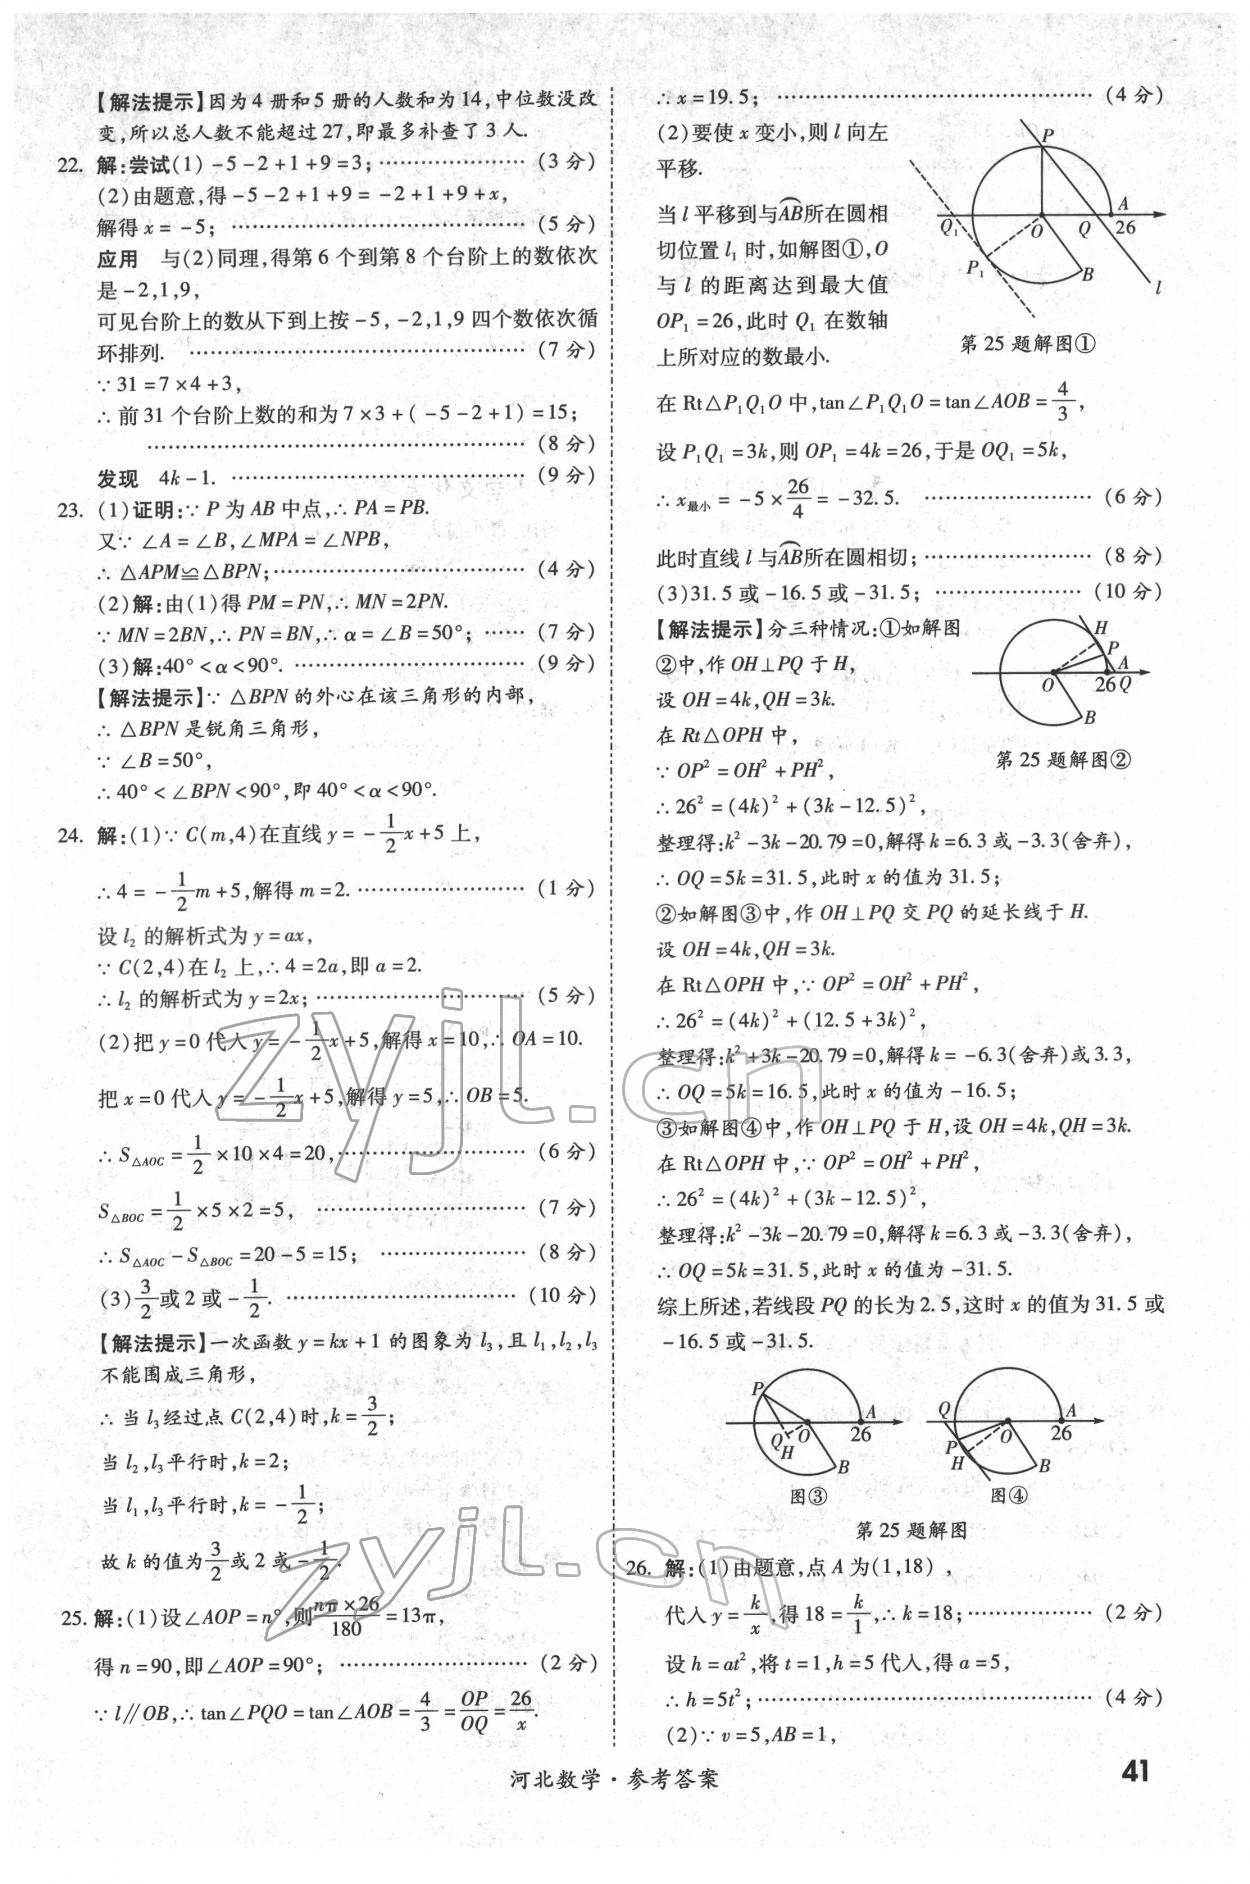 【解法提示】因为4册和5册的人数和为14,中位数没改
变,所以总人数不能超过27,即最多补查了3人.
22. 解:尝试(1) -5-2+1+9=3; …………………… (3分)
(2)由题意,得-5-2+1+9=-2+1+9+x,
解得x=-5; …………………… (5分)
应用 与(2)同理,得第6个到第8个台阶上的数依次
是-2,1,9,
可见台阶上的数从下到上按-5,-2,1,9四个数依次循
环排列. …………………… (7分)
∵31=7×4+3,
∴前31个台阶上数的和为7×3+(-5-2+1)=15;
…………………… (8分)
发现 4k-1. …………………… (9分)
23. (1)证明:∵P为AB中点,∴PA=PB.
又∵∠A=∠B,∠MPA=∠NPB,
∴△APM≌△BPN; …………………… (4分)
(2)解:由(1)得PM=PN,∴MN=2PN.
∵MN=2BN,∴PN=BN,∴α=∠B=50°; …… (7分)
(3)解:40°<α<90°. …………………… (9分)
【解法提示】∵△BPN的外心在该三角形的内部,
∴△BPN是锐角三角形,
∵∠B=50°,
∴40°<∠BPN<90°,即40°<α<90°.
24. 解:(1)∵C(m,4)在直线y=-1/2x+5上,
∴4=-1/2m+5,解得m=2. …………………… (1分)
设l₂的解析式为y=ax,
∵C(2,4)在l₂上,∴4=2a,即a=2.
∴l₂的解析式为y=2x; …………………… (5分)
(2)把y=0代入y=-1/2x+5,解得x=10,∴OA=10.
把x=0代入y=-1/2x+5,解得y=5,∴OB=5.
∴S△AOC=1/2×10×4=20, …………………… (6分)
S△BOC=1/2×5×2=5, …………………… (7分)
∴S△AOC-S△BOC=20-5=15; …………………… (8分)
(3)3/2或2或-1/2. …………………… (10分)
【解法提示】一次函数y=kx+1的图象为l₃,且l₁,l₂,l₃
不能围成三角形,
∴当l₃经过点C(2,4)时,k=3/2;
当l₂,l₃平行时,k=2;
当l₁,l₃平行时,k=-1/2;
故k的值为3/2或2或-1/2.
25. 解:(1)设∠AOP=n°,则nπ×26/180=13π,
得n=90,即∠AOP=90°; …………………… (2分)
∵l∥OB,∴tan∠PQO=tan∠AOB=4/3=OP/OQ=26/x.
∴x=19.5; …………………… (4分)
(2)要使x变小,则l向左
平移.
当l平移到与AB⌒所在圆相
切位置l₁时,如解图①,O
与l的距离达到最大值
OP₁=26,此时Q₁在数轴
上所对应的数最小.
P
A
Q₁
O
Q
26
P₁
B
l
第25题解图①
在Rt△P₁Q₁O中,tan∠P₁Q₁O=tan∠AOB=4/3,
设P₁Q₁=3k,则OP₁=4k=26,于是OQ₁=5k,
∴x最小=-5×26/4=-32.5. …………………… (6分)
此时直线l与AB⌒所在圆相切; …………………… (8分)
(3)31.5或-16.5或-31.5; …………………… (10分)
【解法提示】分三种情况:①如解图
②中,作OH⊥PQ于H,
设OH=4k,QH=3k.
在Rt△OPH中,
∵OP²=OH²+PH²,
H
P
A
O
26
Q
B
第25题解图②
∴26²=(4k)²+(3k-12.5)²,
整理得:k²-3k-20.79=0,解得k=6.3或-3.3(舍弃),
∴OQ=5k=31.5,此时x的值为31.5;
②如解图③中,作OH⊥PQ交PQ的延长线于H.
设OH=4k,QH=3k.
在Rt△OPH中,∵OP²=OH²+PH²,
∴26²=(4k)²+(12.5+3k)²,
整理得:k²+3k-20.79=0,解得k=-6.3(舍弃)或3.3,
∴OQ=5k=16.5,此时x的值为-16.5;
③如解图④中,作OH⊥PQ于H,设OH=4k,QH=3k.
在Rt△OPH中,∵OP²=OH²+PH²,
∴26²=(4k)²+(3k-12.5)²,
整理得:k²-3k-20.79=0,解得k=6.3或-3.3(舍弃),
∴OQ=5k=31.5,此时x的值为-31.5.
综上所述,若线段PQ的长为2.5,这时x的值为31.5或
-16.5或-31.5.
P
A
Q
O
26
H
B
图③
Q
A
P
O
26
H
B
图④
第25题解图
26. 解:(1)由题意,点A为(1,18),
代入y=k/x,得18=k/1,∴k=18; …………………… (2分)
设h=at²,将t=1,h=5代入,得a=5,
∴h=5t²; …………………… (4分)
(2)∵v=5,AB=1,
河北数学·参考答案
41
zyjl.cn
zyjl.cn